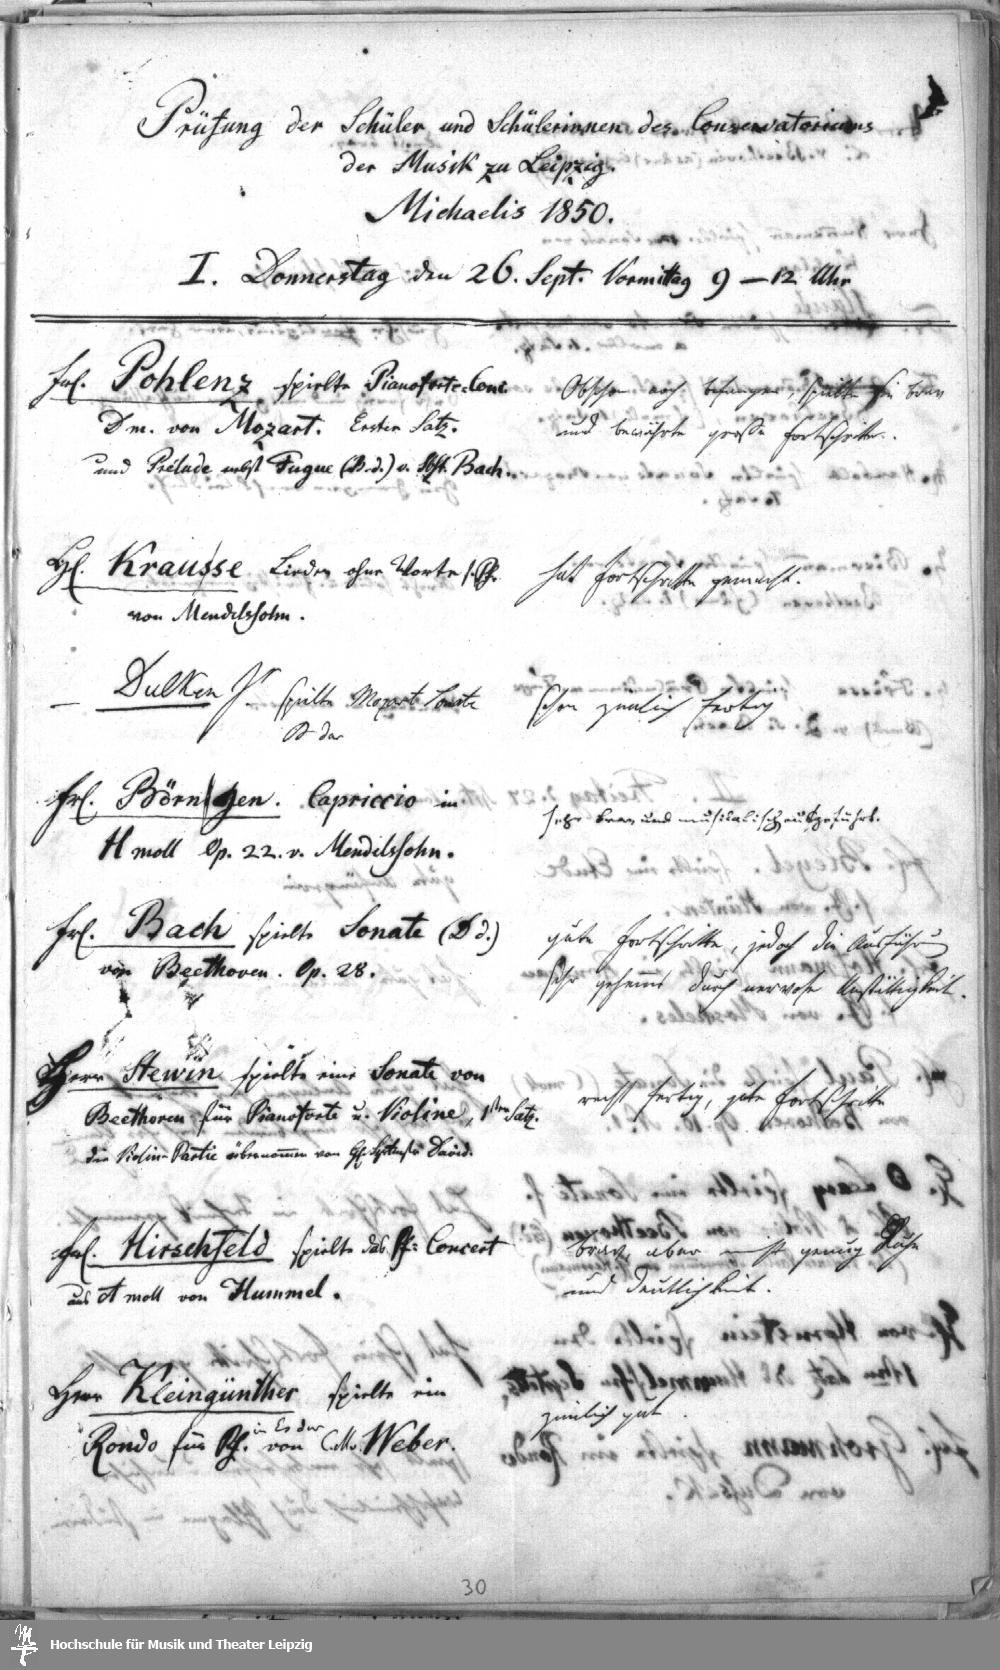 Prüfung der Schüler und Schülerinnen des Conservatoriums
der Musik zu Leipzig.
Michaelis 1850.
I. Donnerstag den 26. Sept. Vormittag 9 – 12 Uhr
Frl. Pohlenz spielte Pianoforte-Conc.
Dm. von Mozart. Erster Satz.
und Prélude nebst Fugue (B. d.) v. Bach.
Obschon noch befangen, spielte sie brav
und bewährte große Fortschritte.
H. Krausse Lieder ohne Worte f. Pf.
von Mendelssohn.
hat Fortschritte gemacht.
– Dulken Jr. spielte Mozart Sonate
B dur
schon ziemlich fertig
Frl. Börngen. Capriccio in
H moll Op. 22. v. Mendelssohn.
sehr brav und musikalisch ausgeführt.
Frl. Bach spielte Sonate (D d.)
von Beethoven. Op. 28.
gute Fortschritte, jedoch die Ausführung
sehr gehemmt durch nervose Unstättigkeit.
Herr Stewin spielte eine Sonate von
Beethoven für Pianoforte u. Violine, 1sten Satz.
die Violin-Partie übernommen von David.
recht fertig, gute Fortschritte
Frl. Hirschfeld spielte das Pf: Concert
aus A moll von Hummel.
brav, aber nicht genug Ruhe
und Deutlichkeit.
Herr Kleingünther spielte ein
Rondo für Pf. in Es dur von C. M. v. Weber.
ziemlich gut.
30
Hochschule für Musik und Theater Leipzig